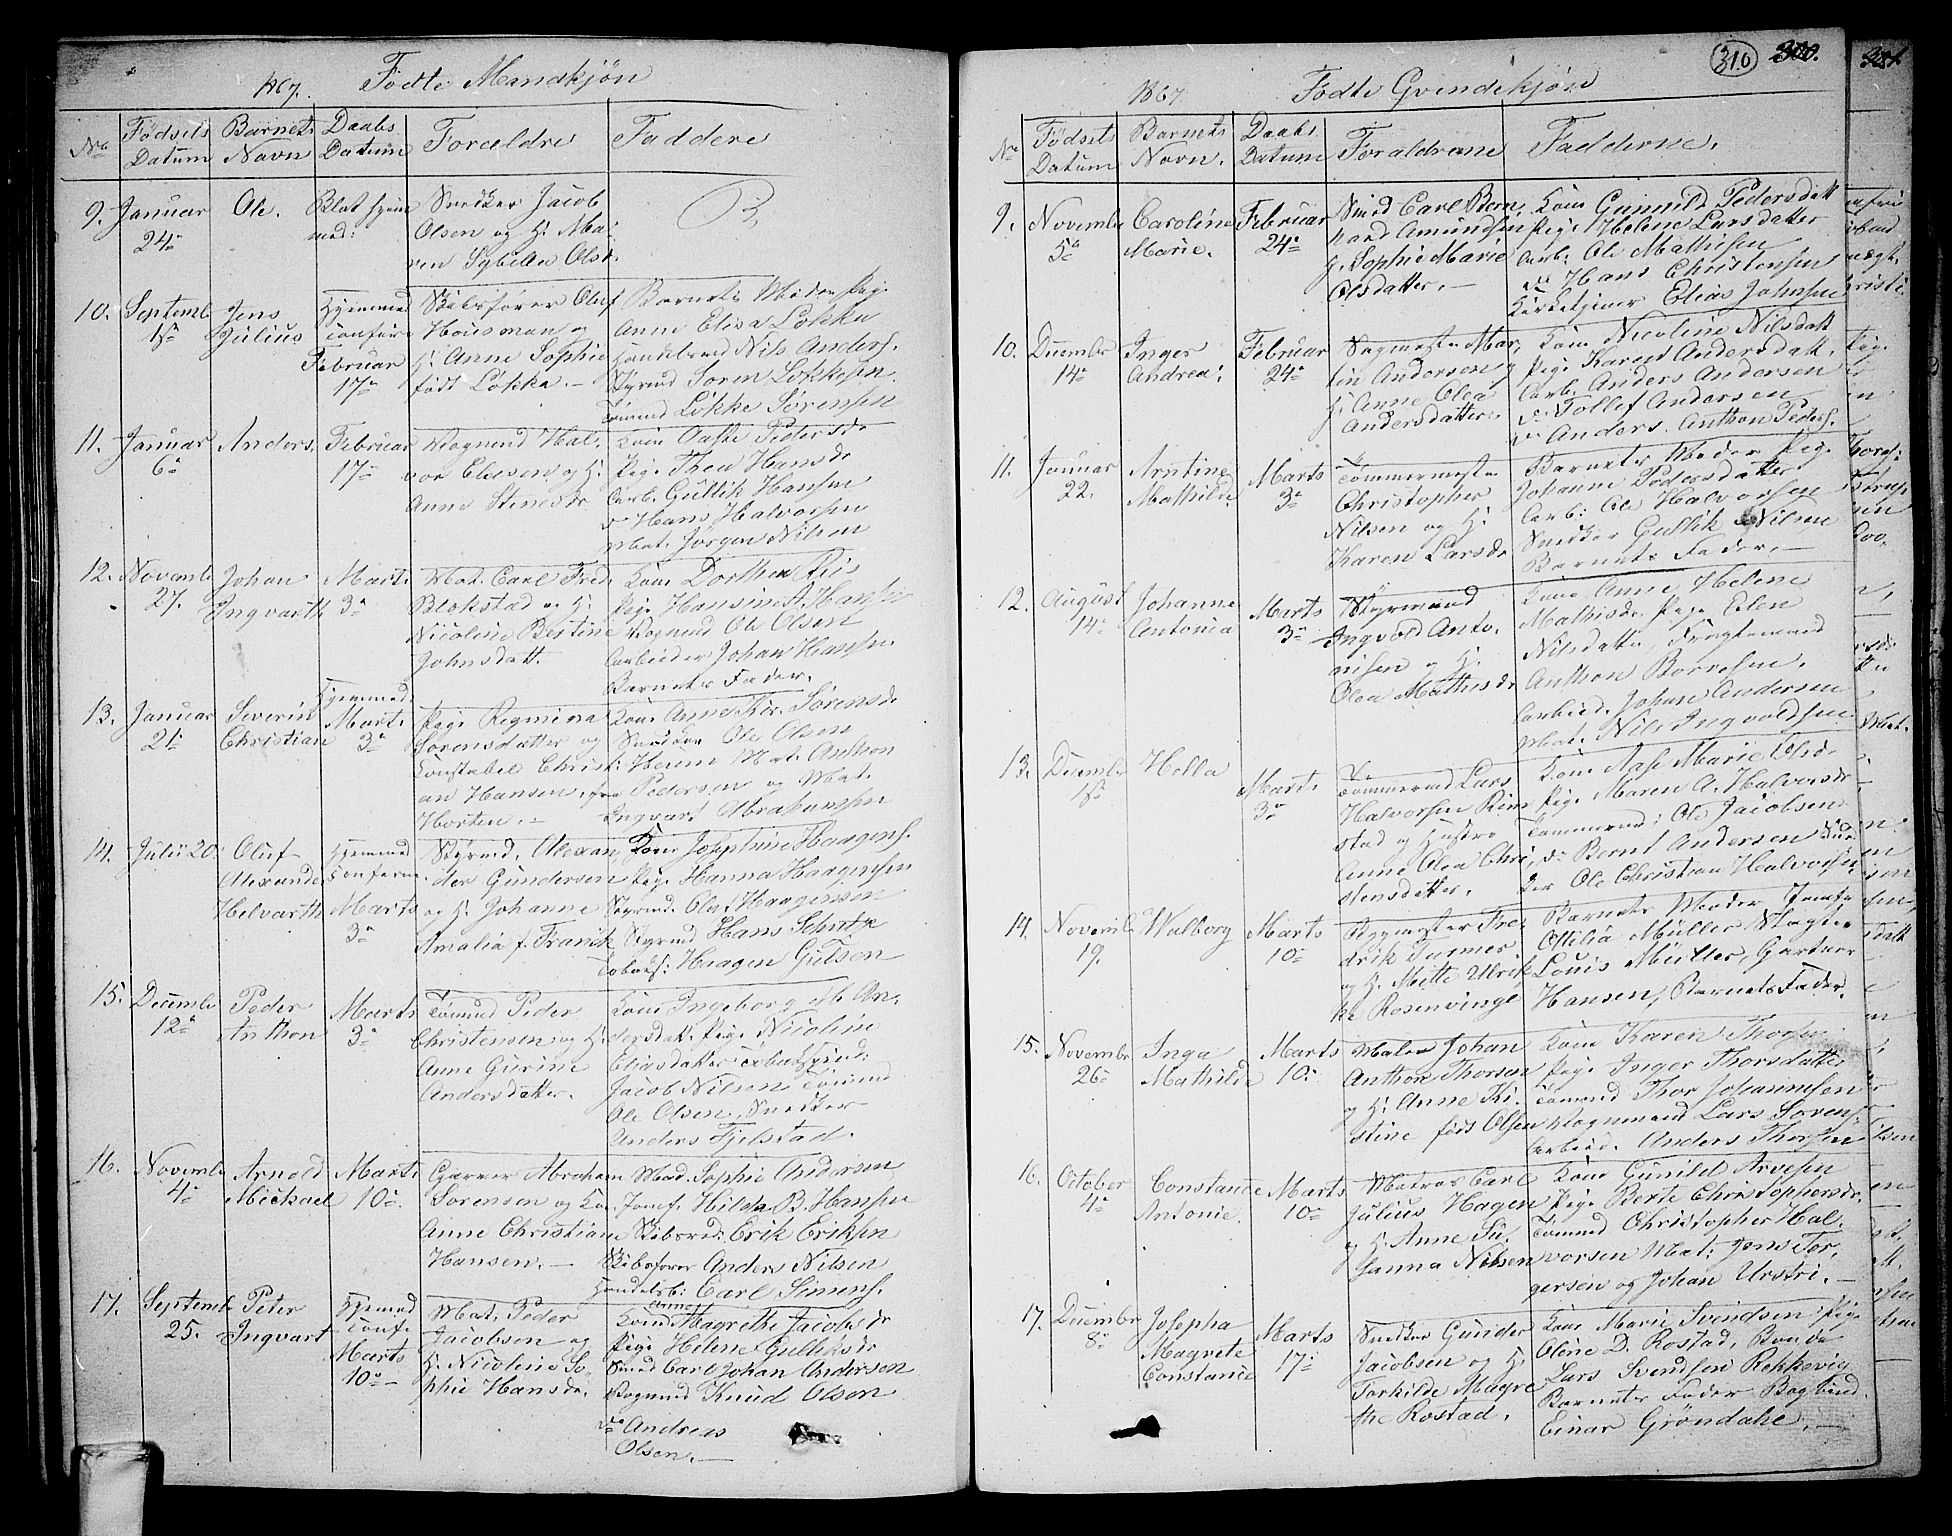 1867. Fødte Mandkjøn
No
Fødsels Datum
Barnets Navn
Daabs Datum
Forældre
Faddere
9. Januar 24de
Ole.
Blot hjemmed:
Snedker Jacob
Olsen og H. Ma-
ren Sybilla Olsd.
10. Septemb
Jens
Julius
Hjemmed
Confir
Februar
17de
Skibsfører Oluf
Housman og
H. Anne Sophie
født Løkke.
Barnets Moder Pig.
Anne Elisa Løkke
Handelsmd Nils Anders.
Styrmd Soren Løkkesen
Tømmd Løkke Sørensen
11. Januar
6te
Anders.
Februar
17de
Vognmd Hal-
vor Elesen og H.
Anne Stinesdr
Kone Pedersdr
Pige Thea Hansdr
Arb. Gullik Hansen
do Hans Halvorsen
Mat. Jørgen Nilsen
12. Novembr
27.
Johan
Ingvarth
Marts
3de
Mat. Carl Fred.
Blokstad og H.
Nicoline Bestine
Johnsdatt.
Kone Dorthea Ris
Pige Hansine A. Hansen
Vognmd Ole Olsen
Arbeider Johan Hansen
Barnets Fader.
13. Januar
21de
Severin
Christian
Hjemmed.
Marts
3de
Pige Regmina
Sørensdatter og
Constabel Christi-
an Hansen, fra
Horten.
Kone Anne Kir. Sørensdr
Ole Olsen
Mat. Anthon
Pedersen og Mat.
Ingvart Abrahamsen
14. Julii 20
Oluf
Alexander
Helvarth
Hjemmed
Confirm
Marts
3de
Styrmd. Alexan
der Gundersen
og H. Johanne
Amalia f. Franck
Kone Josephine Haagens.
Pige Hanna Haagensen
Styrmd. Oluf Haagensen
Styrmd Hans Schutze
Haagen Gulsen
15. Decembr
12te
Peder
Anthon
Marts
3de
Tømmd Peder
Christensen og H.
Anne Gurine
Andersdatter.
Kone Ingeborg An-
dersdatt. Pige Nicoline
Eliasdatter
Jacob Nilsen Tømmd
Ole Olsen, Snedker
Anders Fjelstad.
16. Novembr
4de
Arnold
Michael
Marts
10de
Garver Abraham
Sorensen og Ko.
Anne Christiane
Hansen.
Mad. Sophie Andersen
Jomf. Hilda B. Hansen
Skibsred: Erik Eriksen
Skibsfører Anders Nilsen
Handelsb: Carl Simens.
17. Septembr
25.
Peter
Ingvart
Hjemmed
Confr
Marts
10de
Mat. Peder
Jacobsen og
H. Nicoline So-
phie Hansdr.
Kone Anne Magrethe Jacobsdr
Pige Helene Gulliksdr
Smed Carl Johan Andersen
Vognmd Knud Olsen
do Andreas
Olsen.
310 300. 301
1867. Fødte Qvindekjøn
No
Fødsel Datum
Barnets Navn.
Daabs Datum
Forældrene
Fadderne.
9. Novembr
5te
Caroline
Marie.
Februar
24de
Smed Carl Bern-
hard Amundsen
H. Sophie Marie
Olsdatter.
Kone Gunnild Pedersdatt
Pige Helene Larsdatter
Arb: Ole Mathisen
do Hans Christensen
Kirketjener Elias Johnsen
10. Decembr
14de
Inger
Andrea.
Februar
24de
Sagmester Mar-
tin Andersen og
H. Anne Olea
Andersdatter.
Kone Nicoline Nilsdatt
Pige Karen Andersdatt.
Arb. Anders Andersen
do Tollef Andersen
do Anders Anthon Peders.
11. Januar
22.
Arntine
Mathilde
Marts
3de
Tømmermester
Christopher
Nilsen og H.
Karen Larsdr
Barnets Moder Pige
Johanne Pedersdatter
Arb: Ole Halvorsen
Snedker Gullik Nilsen
Barnets Fader.
12. August
14de
Johanne
Antonia
Marts
3de
Styrmand
Ingvold Anto-
nisen og H.
Olea Mathisdr
Kone Anne Helene
Mathisdr Pige Elen
Nilsdatter, Fragtemand
Anthon Borresen.
Arbeid. Johan Andersen
Mat. Nils Ingvoldsen
13. Decembr
Hella
Marts
3de
Tømmermd Lars
Halvorsen Rim-
stad og Hustro
Anne Olea Chri-
stensdatter.
Kone Aase Marie Olsdr
Pige Maren A. Halvorsdr
Tømmermd: Ole Jacobsen
do Bernt Andersen Sne-
ker Ole Christian Halvorsen
14. Novembr
19.
Walborg
Marts
10de
Bygmester Fre-
drik
og H. Mette Ulrik-
ke Rosenvinge
Barnets Moder Jomfr
Ottilia Müller Slagter
Louis Müller, Gartner
Hansen, Barnets Fader.
15. Novembr
26de
Inga
Mathilde
Marts
10de
Maler Johan
Anthon Thorsen
og H. Anne Ki-
stine født Olsen
Kone Karen Thorsen
Pige Inger Thorsdatter
Tømmd Thor Johannesen
Vognmand Lars Sorens.
Arbeid. Anders Thorsen
16. October
4de
Constance
Antonie.
Marts
10de
Matros Carl
Julius Hagen
og H. Anne Su-
sanna Nilsen
Kone Gunild Arvesen
Pige Berte Christophersdr.
Tømmd Christopher Hal-
vorsen Mat: Jens Tor-
gersen og Johan Urstri.
17. Decembr
8de
Josepha
Magrete
Constance
Marts
17de
Snedker Gunder
Jacobsen og H.
Torhilde Magre
the Rostad.
Kone Marie Svendsen Pige
Oline D. Rostad, Bonde
Lars Svendsen Rekkevig
Barnets Fader Bogbind
Einar Grøndahl.